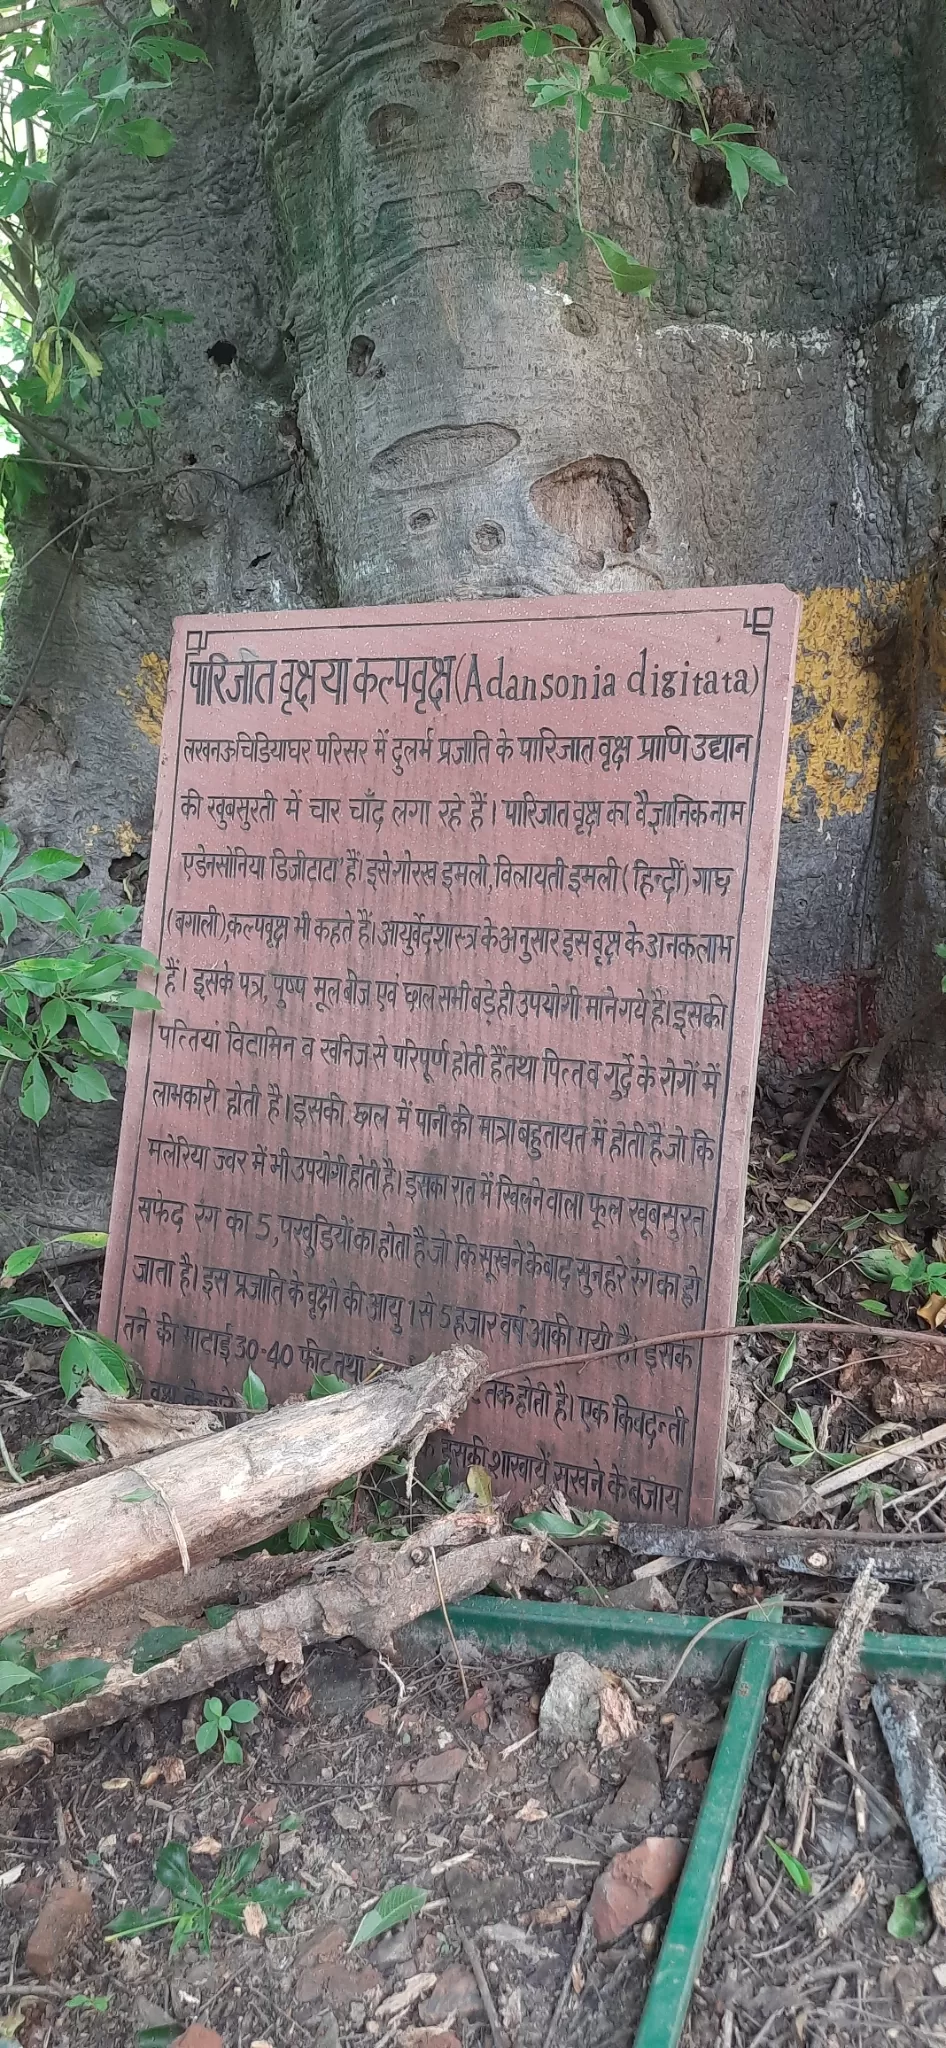 पारिजात वृक्ष या कल्पवृक्ष (Adansonia digitata)
लखनऊ चिडियाघर परिसर में दुलर्भ प्रजाति के पारिजात वृक्ष प्राणि उद्यान
की खुबसुरती में चार चाँद लगा रहे हैं। पारिजात वृक्ष का वैज्ञानिक नाम
एडेनसोनिया डिजीटाटा' हैं। इसे गोरख इमली, विलायती इमली (हिन्दीं) गाछ
(बगाली), कल्पवृक्ष भी कहते हैं। आयुर्वेद शास्त्र के अनुसार इस वृक्ष के अनक लाभ
हैं। इसके पत्र, पुष्प मूल बीज एवं छाल सभी बड़े ही उपयोगी माने गये हैं। इसकी
पत्तियां विटामिन व खनिज से परिपूर्ण होती हैं तथा पित्त व गुर्दे के रोगों में
लाभकारी होती है। इसकी छाल में पानी की मात्रा बहुतायत में होती है जो कि
मलेरिया ज्वर में भी उपयोगी होती है। इसका रात में खिलने वाला फूल खूबसुरत
सफेद रंग का 5, पखुडियों का होता है जो कि सूखने के बाद सुनहरे रंग का हो
जाता है। इस प्रजाति के वृक्षो की आयु 1 से 5 हजार वर्ष आकी गयी है। इसक
तने की माटाई 30-40 फीट तथा
वृक्ष के तक होती है। एक किवदन्ती
इसकी शाखायें सूखने के बजाय